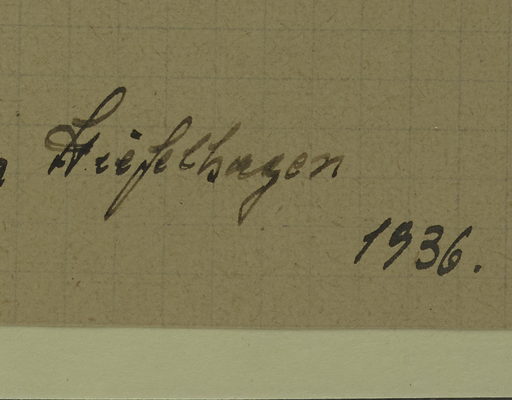 Stiefelhagen
1936.